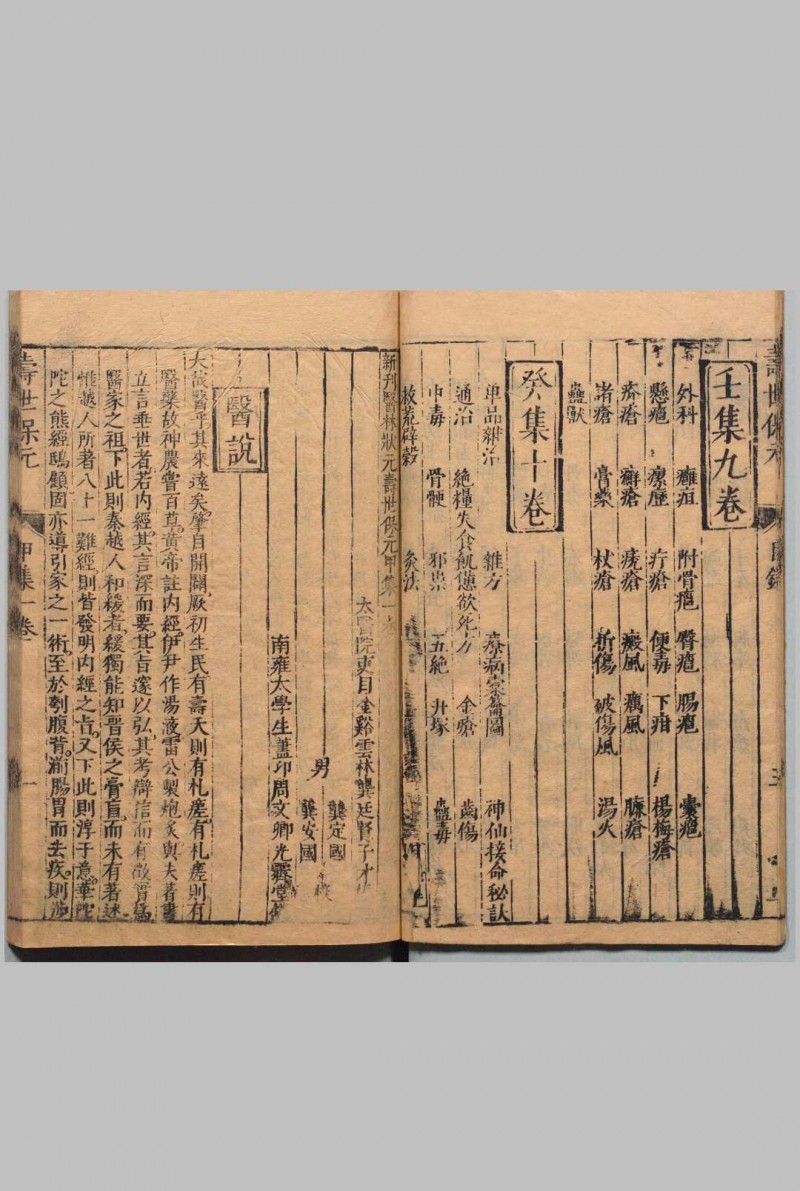 壽世保元
壬集九卷
外科 癰疽 附骨疽 臀疽 腸疽 囊疽
懸疽 瘰癧 疔瘡 便毒 下疳 楊梅瘡
疥瘡 癬瘡 疣瘡 癜風 癘風 臁瘡
諸瘡 膏藥 杖瘡 折傷 破傷風 湯火
蟲獸
癸集十卷
單品雜治 雜方 療病 神仙接命秘訣
通治 絶糧失食飢憊欲死方 金瘡 齒傷
中毒 骨骾 邪祟 五絶 蠱毒
救荒辟穀 灸法
新刋醫林狀元壽世保元甲集一
太醫院吏目金谿雲林龔廷賢子才
男 龔定國
龔安國
南雍太學生蓋卬周文卿光霽堂
醫說
大哉醫乎其來遠矣肇自開闢厥初生民有壽夭則有札瘥有札瘥則有
醫藥故神農嘗百草黃帝註内經伊尹作湯液雷公製炮炙與夫著書
立言垂世者若内經其言深而要其旨邃以弘其考辯信而有
醫家之祖下此則秦越人和緩者緩獨能知晋侯之膏肓而未有著述
惟越人所者八十一難經則皆發明内經之旨又下此則淳于意華陀
陀之熊經鴟顧固亦導引家之一術至於刳腹背湔腸胃而去疾則
壽世保元
甲集一卷
一